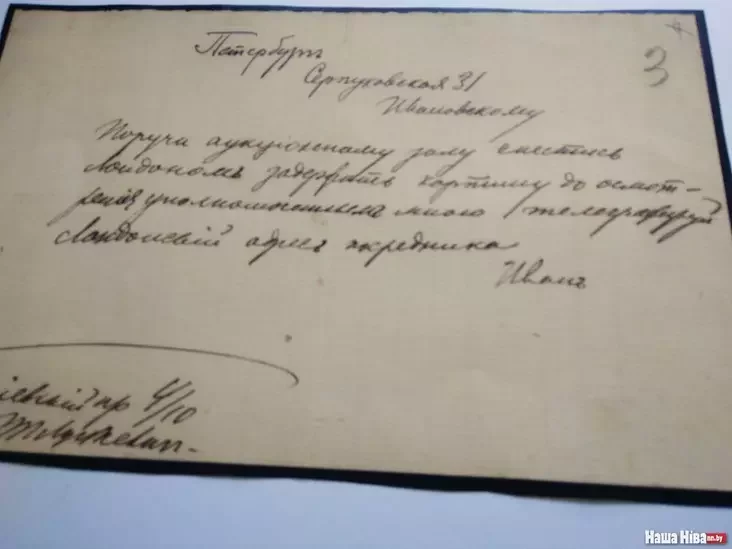 3
Петербургъ
Серпуховская 31
Ивановскому
Поручи аукціонному залу снестись
Лондономъ задержать картину до осмот-
ренія уполномоченнымъ мною телеграфируй
Лондонскій адресъ посредника
Иванъ
пр 4/10
Наша Ніва nn.by